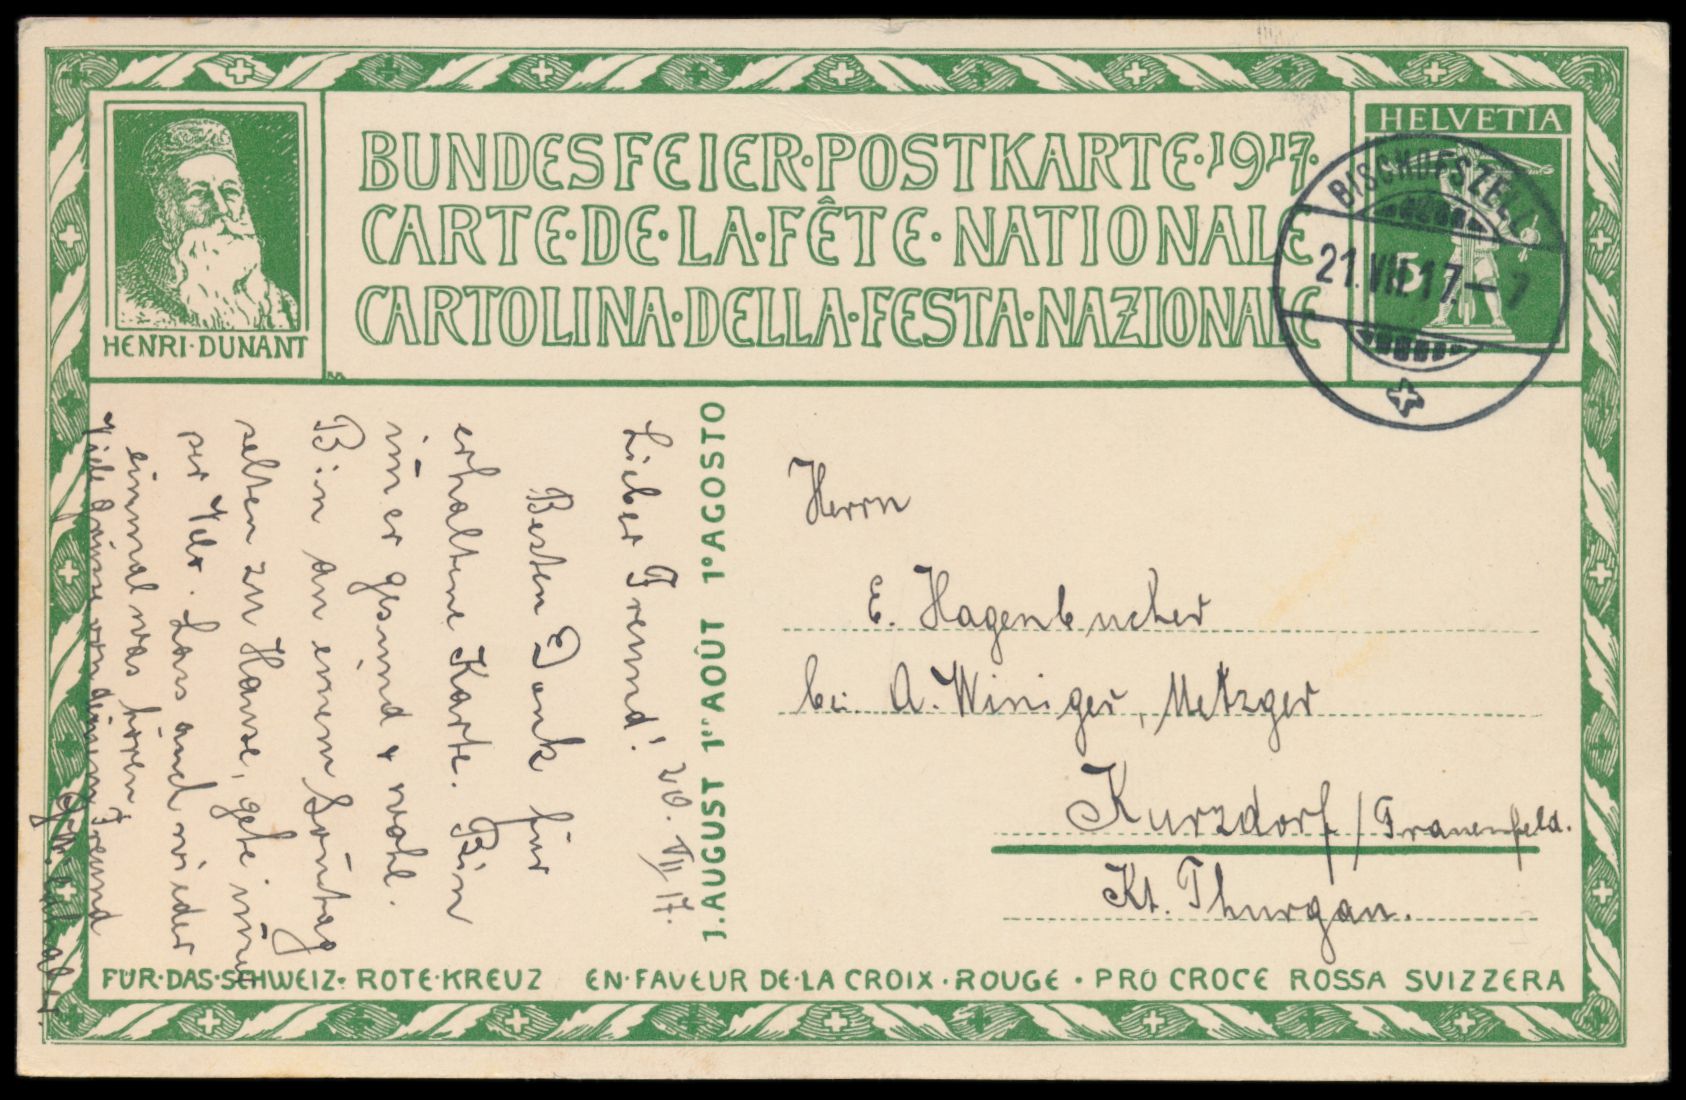 BUNDESFEIER·POSTKARTE·1917·
CARTE·DE·LA·FÊTE·NATIONALE
CARTOLINA·DELLA·FESTA·NAZIONALE
HENRI·DUNANT
HELVETIA
5
BISCHOFSZELL
21.VII.17.–7
1. AUGUST 1ER AOÛT 1° AGOSTO
20. VII 17.
Lieber Freund!
Besten Dank für
erhaltene Karte. Bin
im̄er gesund & wohl.
Bin an einem Sontag
selten zu Hause, gehe im̄er
per Velo. Lass auch wieder
einmal was hören,
Viele Grüsse von deinem Freund
Herrn
E. Hagenbucher
bei A. Winiger, Metzger
Kurzdorf / Frauenfeld.
Kt. Thurgau.
FÜR·DAS·SCHWEIZ· ROTE·KREUZ EN·FAVEUR DE·LA CROIX·ROUGE · PRO CROCE ROSSA SVIZZERA